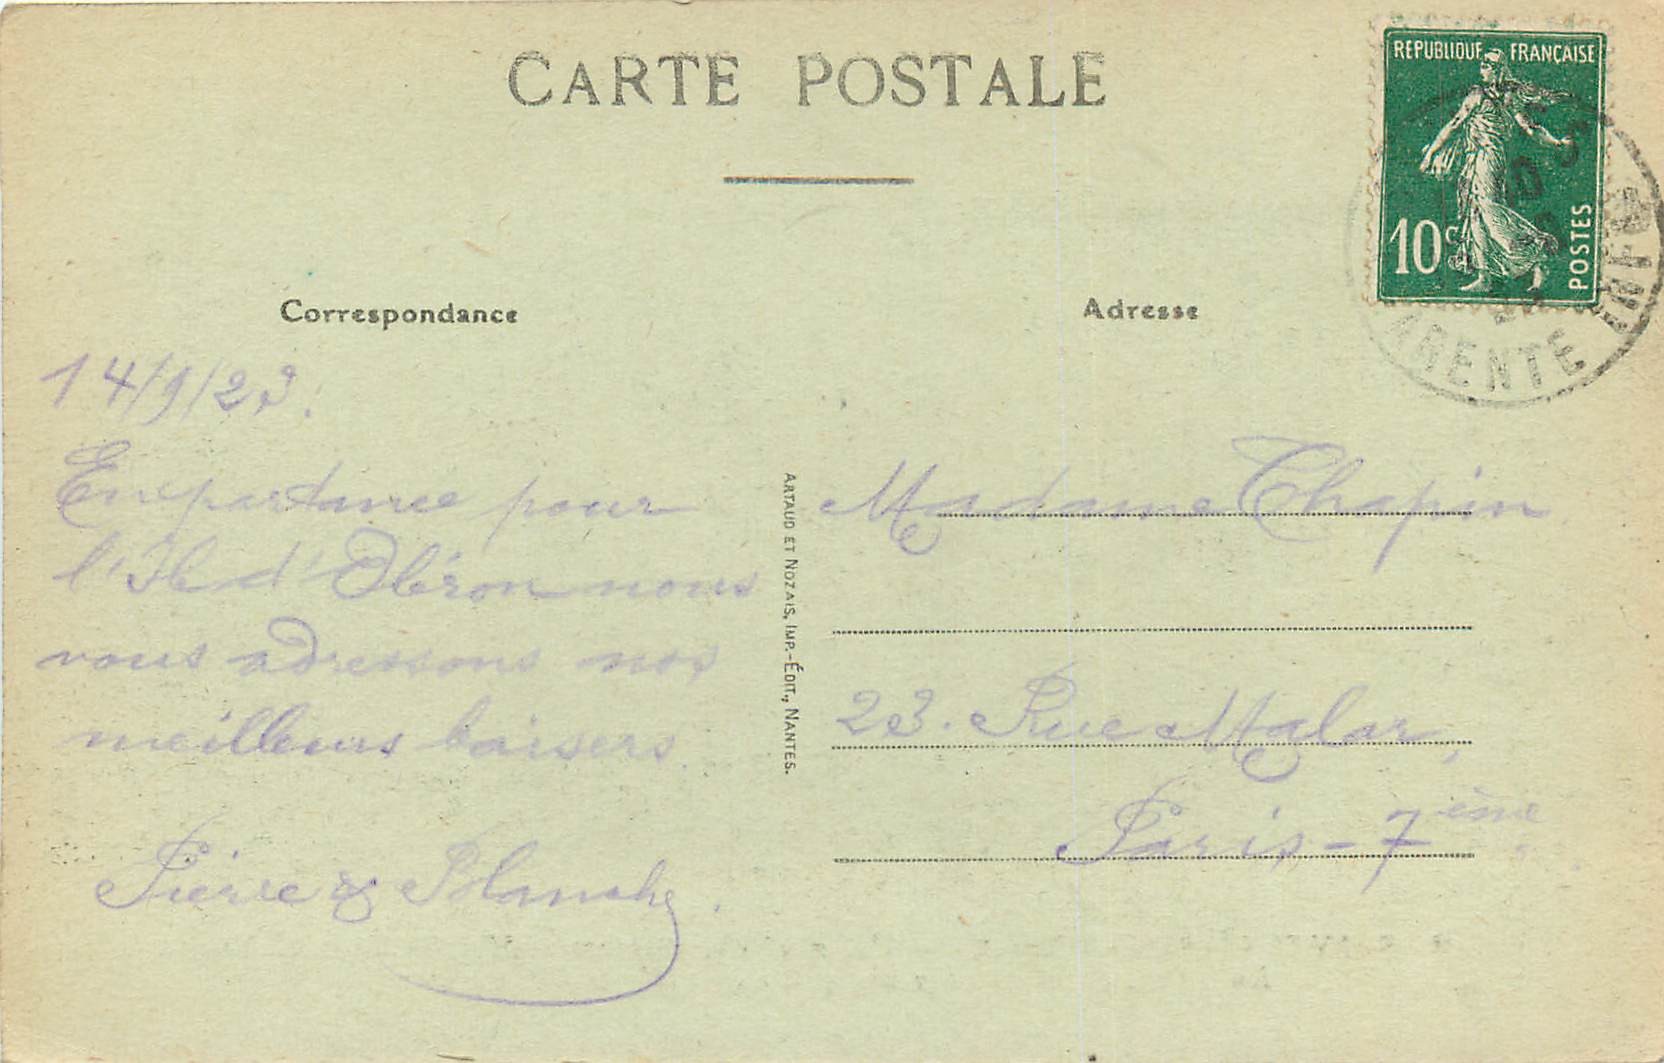 CARTE POSTALE
REPUBLIQUE FRANÇAISE
10c
POSTES
ARENTE INFRE
Correspondance
14/9/23.
En partance pour
l'Ile d'Oléron nous
vous adressons nos
meilleurs baisers.
Pierre & Blanche.
ARTAUD ET NOZAIS, IMP.-ÉDIT., NANTES.
Adresse
Madame Chapin
23. Rue Malar,
Paris - 7ème